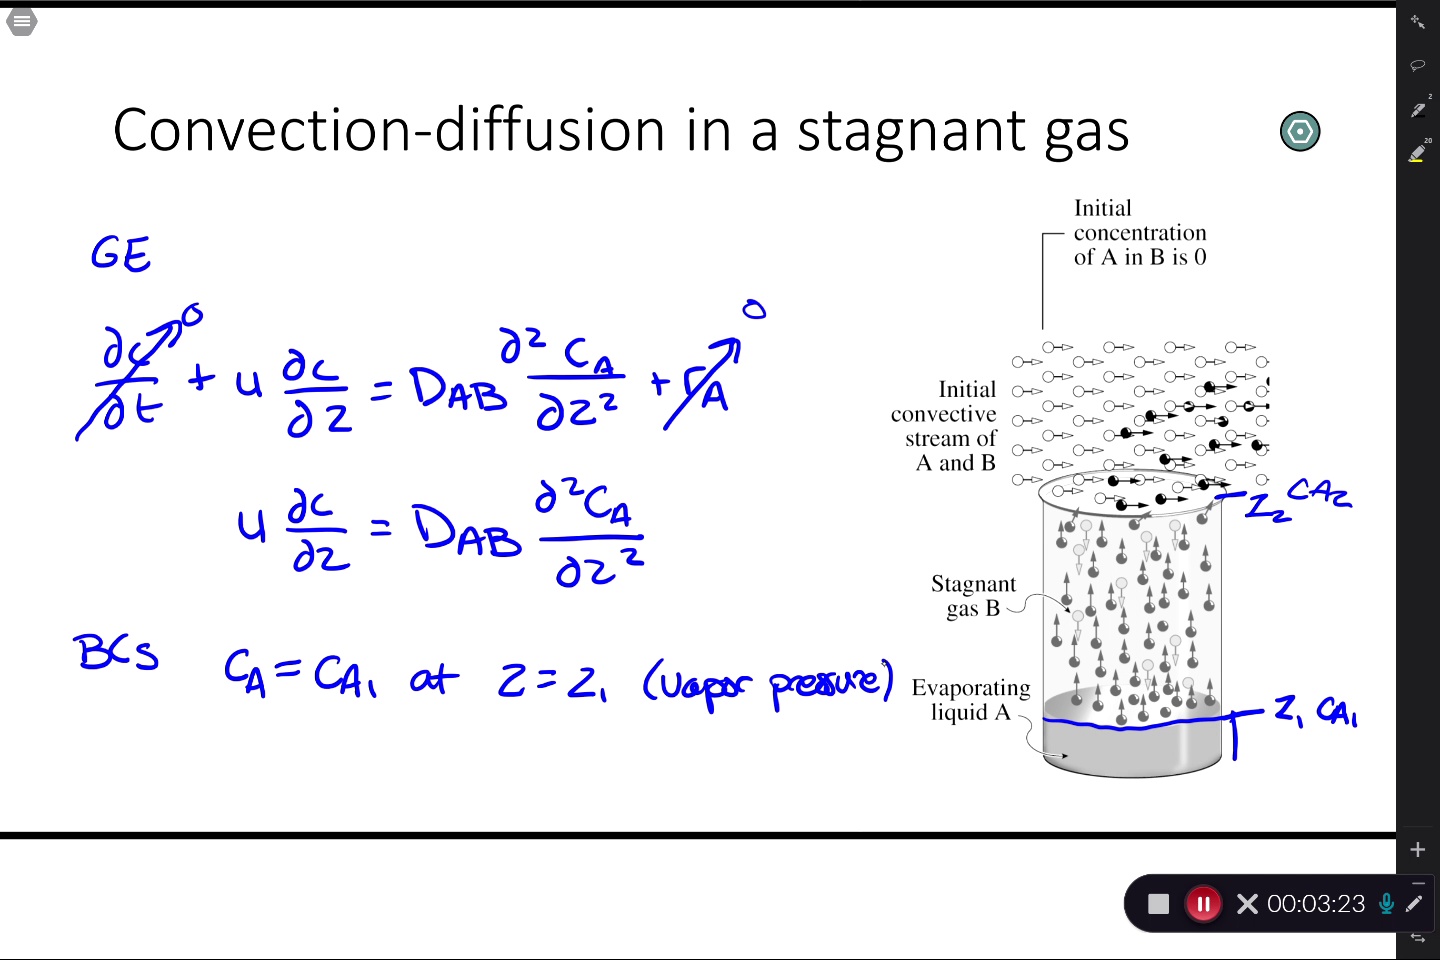 Convection-diffusion in a stagnant gas
GE
∂c/∂t → 0 + u ∂c/∂z = D_AB ∂²C_A/∂z² + r_A → 0
u ∂c/∂z = D_AB ∂²C_A/∂z²
BCs C_A = C_A1 at z = z₁ (vapor pressure)
Initial
concentration
of A in B is 0
Initial
convective
stream of
A and B
z₂ C_A2
Stagnant
gas B
Evaporating
liquid A
z₁ C_A1
2
20
00:03:23